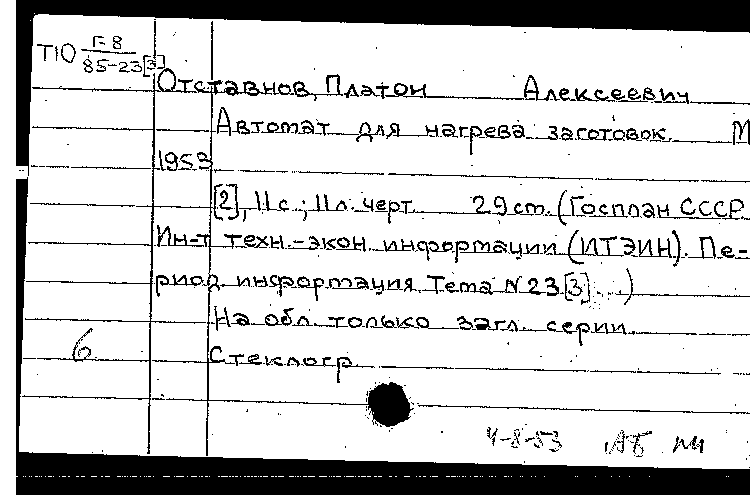 Т10 Г-8
85-23[3]
Отставнов, Платон Алексеевич
Автомат для нагрева заготовок. М
1953
[2], 11 с.; 11 л. черт. 29 cm. (Госплан СССР
Ин-т техн.-экон. информации (ИТЭИН). Пе-
риод. информация. Тема N 23[3]...)
На обл. только загл. серии.
6
Стеклогр.
4-8-53